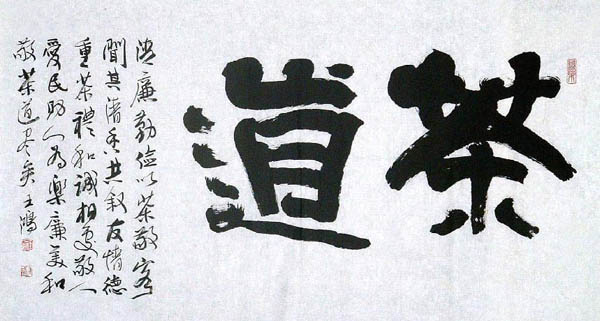 茶道
清廉勤儉以茶敬客
聞其清香共敘友情德
重茶禮和誠相處敬人
愛民助人為樂廉美和
敬茶道尽矣王鴻